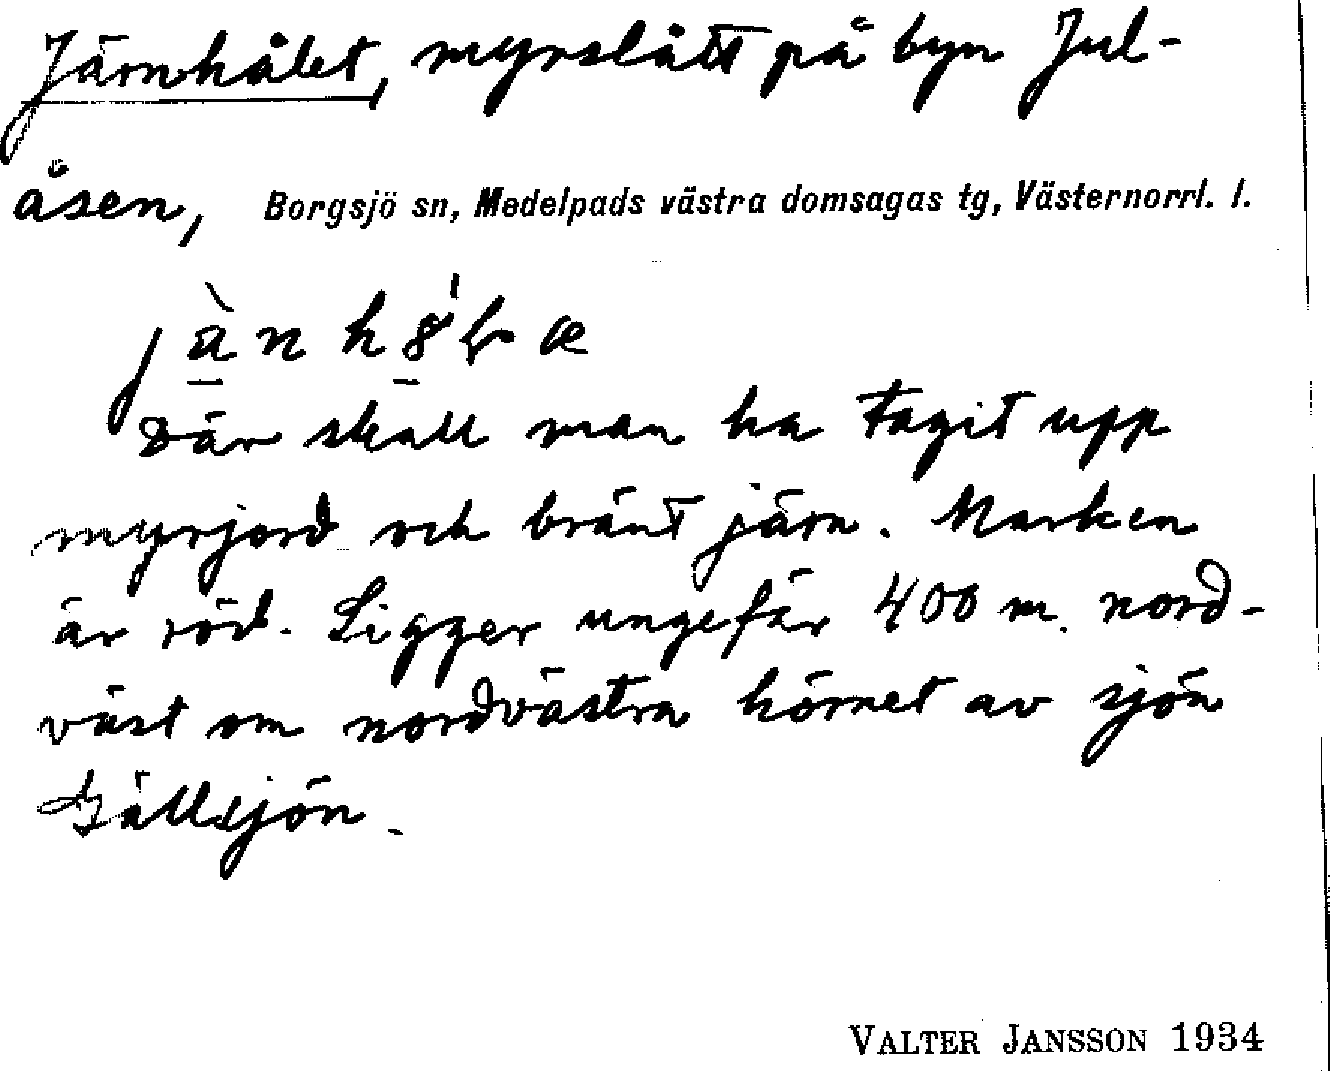 Järnhålet, myrslått på byn Jul-
åsen, Borgsjö sn, Medelpads västra domsagas tg, Västernorrl. l.
Där skall man ha tagit upp
myrjord och bränt järn. Marken
är röd. Ligger ungefär 400 m. nord-
väst om nordvästra hörnet av sjön
Gällsjön.
VALTER JANSSON 1934